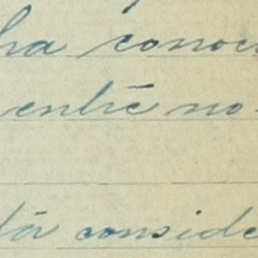 ha conoci
entre no
tá conside